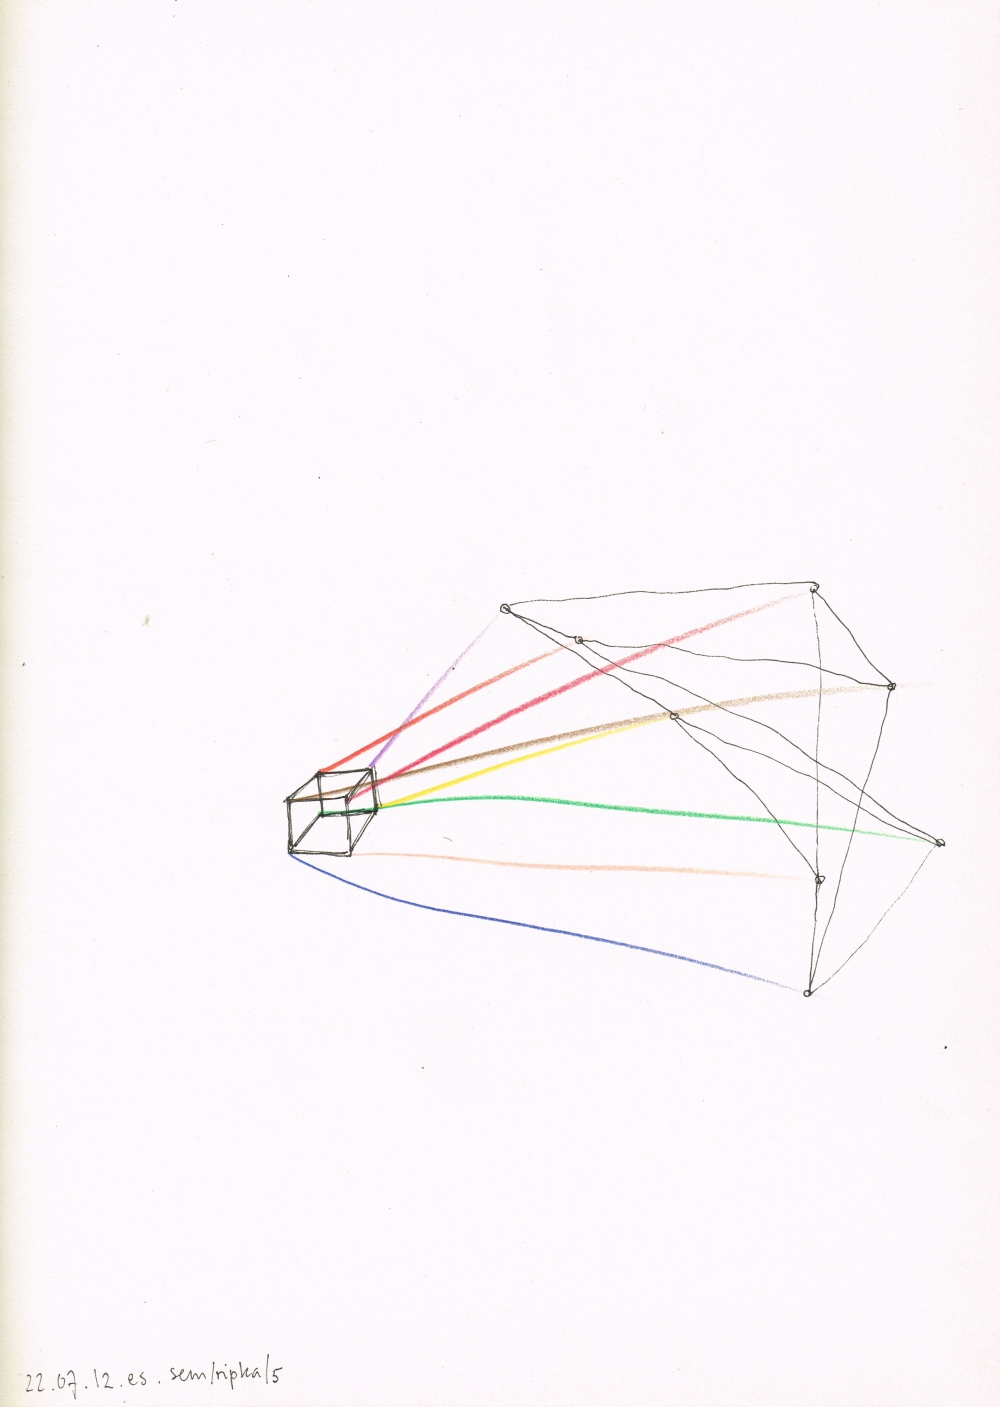 22.07.12.es. sem/ripka/5